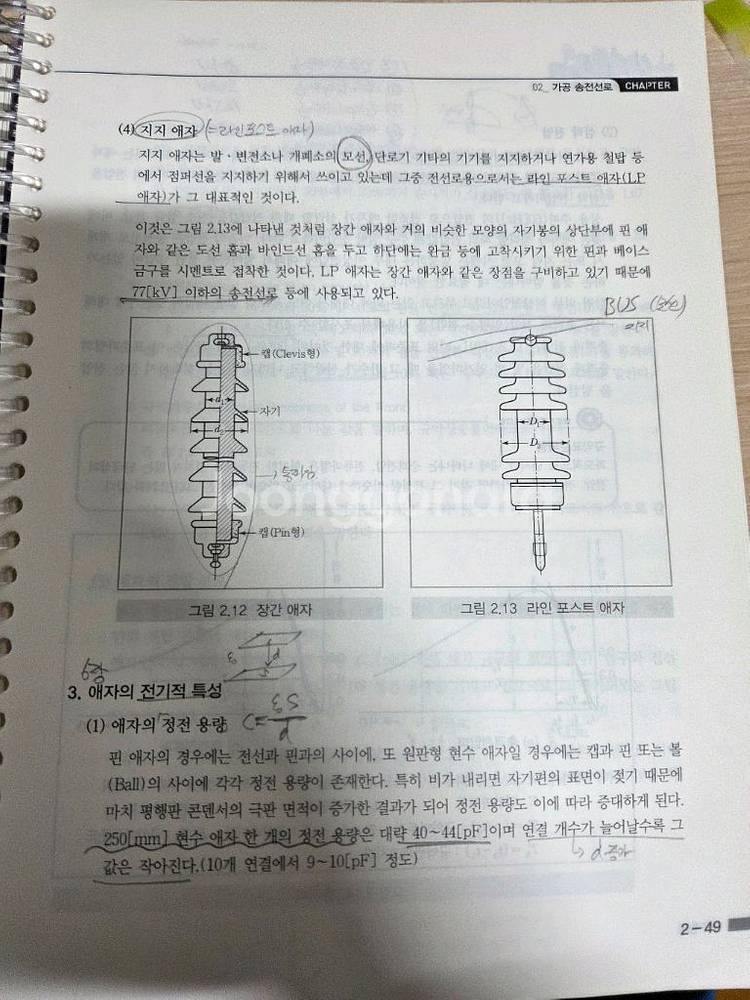 02_ 가공 송전선로 CHAPTER
(4) 지지 애자 (=라인포스트 애자)
지지 애자는 발·변전소나 개폐소의 모선, 단로기 기타의 기기를 지지하거나 연가용 철탑 등
에서 점퍼선을 지지하기 위해서 쓰이고 있는데 그중 전선로용으로서는 라인 포스트 애자(LP
애자)가 그 대표적인 것이다.
이것은 그림 2.13에 나타낸 것처럼 장간 애자와 거의 비슷한 모양의 자기봉의 상단부에 핀 애
자와 같은 도선 홈과 바인드선 홈을 두고 하단에는 완금 등에 고착시키기 위한 핀과 베이스
금구를 시멘트로 접착한 것이다. LP 애자는 장간 애자와 같은 장점을 구비하고 있기 때문에
77[kV] 이하의 송전선로 등에 사용되고 있다.
BUS (모선)
지지
캡(Clevis형)
d₁
자기
d₂
캡(Pin형)
D₁
D₂
joonggonara
그림 2.12 장간 애자
그림 2.13 라인 포스트 애자
ε
d
S
6장
3. 애자의 전기적 특성
(1) 애자의 정전 용량 C=εS/d
핀 애자의 경우에는 전선과 핀과의 사이에, 또 원판형 현수 애자일 경우에는 캡과 핀 또는 볼
(Ball)의 사이에 각각 정전 용량이 존재한다. 특히 비가 내리면 자기편의 표면이 젖기 때문에
마치 평행판 콘덴서의 극판 면적이 증가한 결과가 되어 정전 용량도 이에 따라 증대하게 된다.
250[mm] 현수 애자 한 개의 정전 용량은 대략 40~44[pF]이며 연결 개수가 늘어날수록 그
값은 작아진다.(10개 연결에서 9~10[pF] 정도)
↳ d 증가
2-49